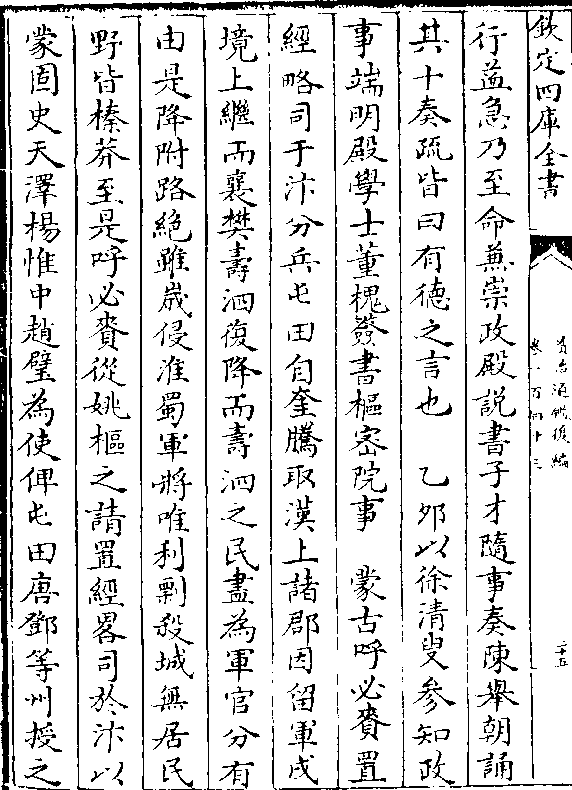 欽定四庫全書
資治通鑑後編
卷一百四十三
二十五
行益急乃至命兼崇政殿說書子才隨事奏陳舉朝誦
其十奏疏皆曰有德之言也　乙卯以徐清叟參知政
事端明殿學士董槐發書樞密院事　蒙古呼必賚置
經略司于汴分兵屯田自奎騰取漢上諸郡因留軍戍
境上繼而襄樊壽泗復降而壽泗之民盡為軍官分有
由是降附路絕雖歲侵淮蜀軍將唯利剽殺城無居民
野皆榛莽至是呼必賚從姚樞之請置經畧司於汴以
蒙固史天澤楊惟中趙璧為使俾屯田唐鄧等州授之